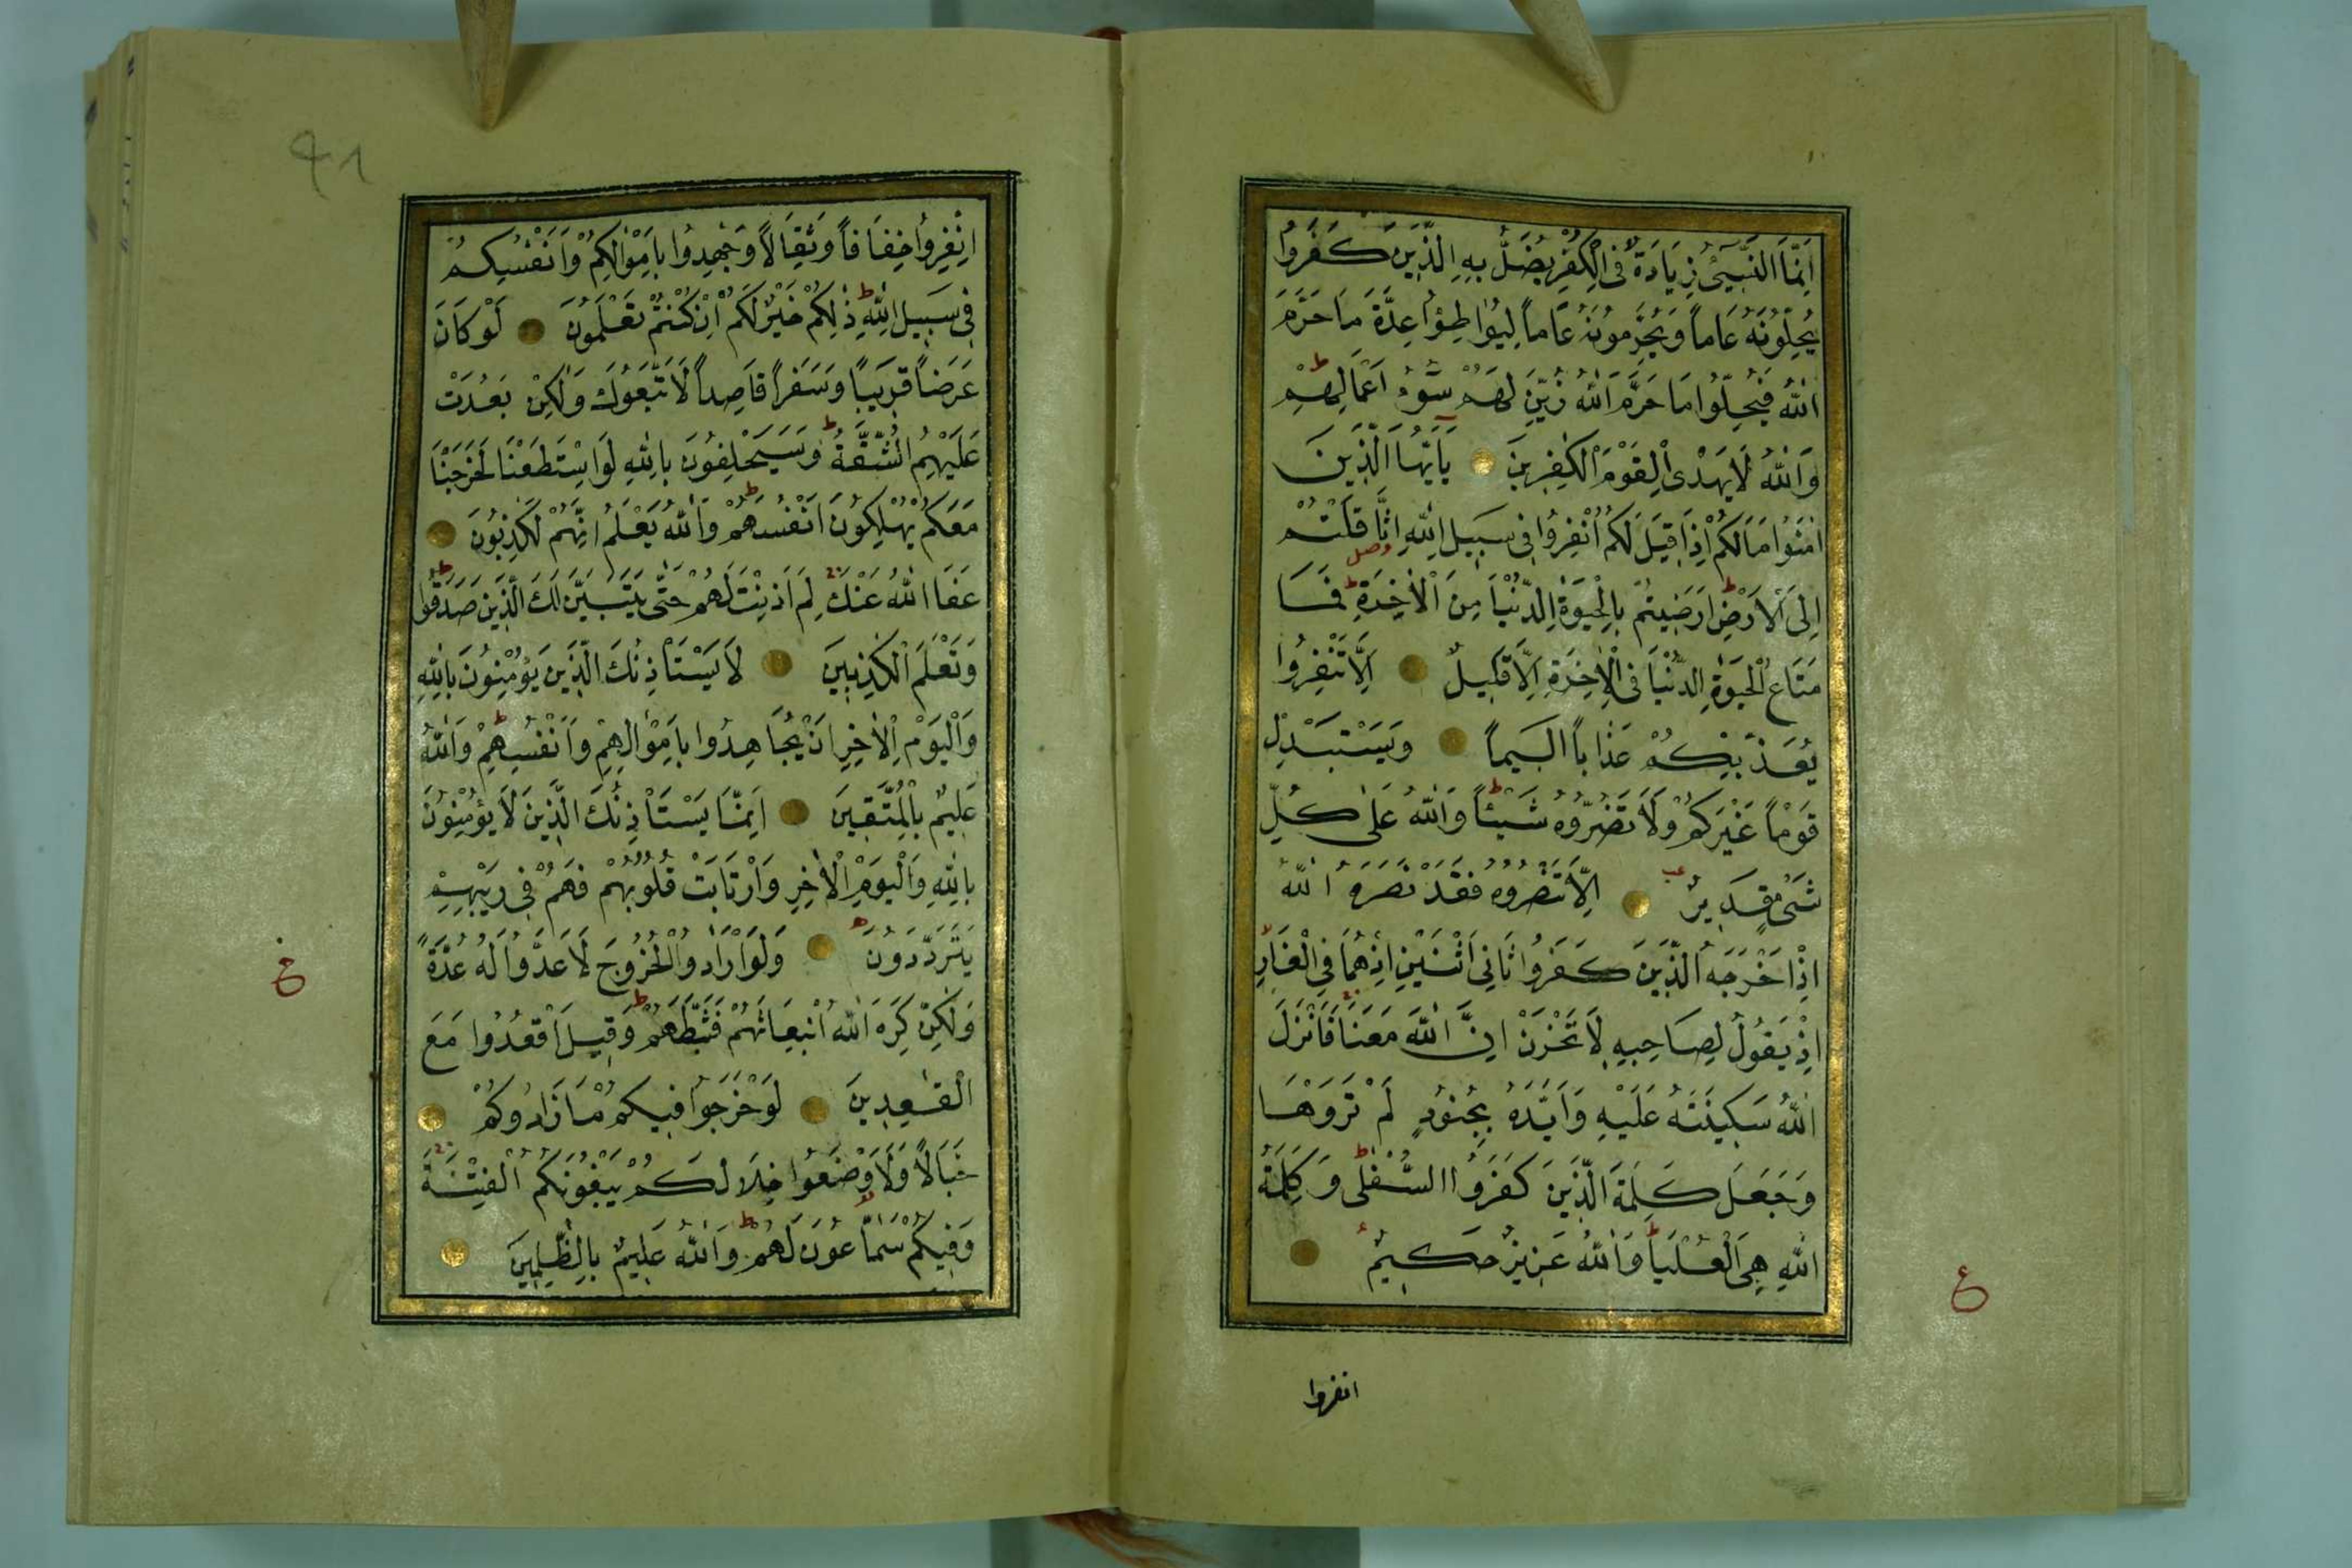 اِنَّمَا النَّسِيءُ زِيَادَةٌ فِي الْكُفْرِ يُضَلُّ بِهِ الَّذِينَ كَفَرُوا
يُحِلُّونَهُ عَاماً وَيُحَرِّمُونَهُ عَاماً لِيُوَاطِئُوا عِدَّةَ مَا حَرَّمَ
اللهُ فَيُحِلُّوا مَا حَرَّمَ اللهُ زُيِّنَ لَهُمْ سُوءُ اَعْمَالِهِمْ ط
وَاللهُ لَا يَهْدِى الْقَوْمَ الْكٰفِرِينَ يَاَيُّهَا الَّذِينَ
اٰمَنُوا مَا لَكُمْ اِذَا قِيلَ لَكُمُ انْفِرُوا فِى سَبِيلِ اللهِ اثَّاقَلْتُمْ
اِلَى الْاَرْضِ ط اَرَضِيتُمْ بِالْحَيٰوةِ الدُّنْيَا مِنَ الْاٰخِرَةِ ط فَمَا
مَتَاعُ الْحَيٰوةِ الدُّنْيَا فِى الْاٰخِرَةِ اِلَّا قَلِيلٌ اِلَّا تَنْفِرُوا
يُعَذِّبْكُمْ عَذَاباً اَلِيماً وَيَسْتَبْدِلْ
قَوْماً غَيْرَكُمْ وَلَا تَضُرُّوهُ شَيْئاً ط وَاللهُ عَلٰى كُلِّ
شَىْءٍ قَدِيرٌ اِلَّا تَنْصُرُوهُ فَقَدْ نَصَرَهُ اللهُ
اِذْ اَخْرَجَهُ الَّذِينَ كَفَرُوا ثَانِىَ اثْنَيْنِ اِذْ هُمَا فِى الْغَارِ
اِذْ يَقُولُ لِصَاحِبِهِ لَا تَحْزَنْ اِنَّ اللهَ مَعَنَا فَاَنْزَلَ
اللهُ سَكِينَتَهُ عَلَيْهِ وَاَيَّدَهُ بِجُنُودٍ لَمْ تَرَوْهَا
وَجَعَلَ كَلِمَةَ الَّذِينَ كَفَرُوا السُّفْلٰى ط وَكَلِمَةُ
اللهِ هِىَ الْعُلْيَا ط وَاللهُ عَزِيزٌ حَكِيمٌ
ع
انفروا
اِنْفِرُوا خِفَافاً وَثِقَالاً وَجٰهِدُوا بِاَمْوَالِكُمْ وَاَنْفُسِكُمْ
فِى سَبِيلِ اللهِ ط ذٰلِكُمْ خَيْرٌ لَكُمْ اِنْ كُنْتُمْ تَعْلَمُونَ لَوْ كَانَ
عَرَضاً قَرِيباً وَسَفَراً قَاصِداً لَاتَّبَعُوكَ وَلٰكِنْ بَعُدَتْ
عَلَيْهِمُ الشُّقَّةُ ط وَسَيَحْلِفُونَ بِاللهِ لَوِ اسْتَطَعْنَا لَخَرَجْنَا
مَعَكُمْ يُهْلِكُونَ اَنْفُسَهُمْ ط وَاللهُ يَعْلَمُ اِنَّهُمْ لَكٰذِبُونَ
عَفَا اللهُ عَنْكَ لِمَ اَذِنْتَ لَهُمْ حَتّٰى يَتَبَيَّنَ لَكَ الَّذِينَ صَدَقُوا
وَتَعْلَمَ الْكٰذِبِينَ لَا يَسْتَأْذِنُكَ الَّذِينَ يُؤْمِنُونَ بِاللهِ
وَالْيَوْمِ الْاٰخِرِ اَنْ يُجَاهِدُوا بِاَمْوَالِهِمْ وَاَنْفُسِهِمْ ط وَاللهُ
عَلِيمٌ بِالْمُتَّقِينَ اِنَّمَا يَسْتَأْذِنُكَ الَّذِينَ لَا يُؤْمِنُونَ
بِاللهِ وَالْيَوْمِ الْاٰخِرِ وَارْتَابَتْ قُلُوبُهُمْ فَهُمْ فِى رَيْبِهِمْ
يَتَرَدَّدُونَ وَلَوْ اَرَادُوا الْخُرُوجَ لَاَعَدُّوا لَهُ عُدَّةً
وَلٰكِنْ كَرِهَ اللهُ انْبِعَاثَهُمْ فَثَبَّطَهُمْ ط وَقِيلَ اقْعُدُوا مَعَ
الْقٰعِدِينَ لَوْ خَرَجُوا فِيكُمْ مَا زَادُوكُمْ
خَبَالاً وَلَاَوْضَعُوا خِلَالَكُمْ يَبْغُونَكُمُ الْفِتْنَةَ
وَفِيكُمْ سَمَّاعُونَ لَهُمْ ط وَاللهُ عَلِيمٌ بِالظّٰلِمِينَ